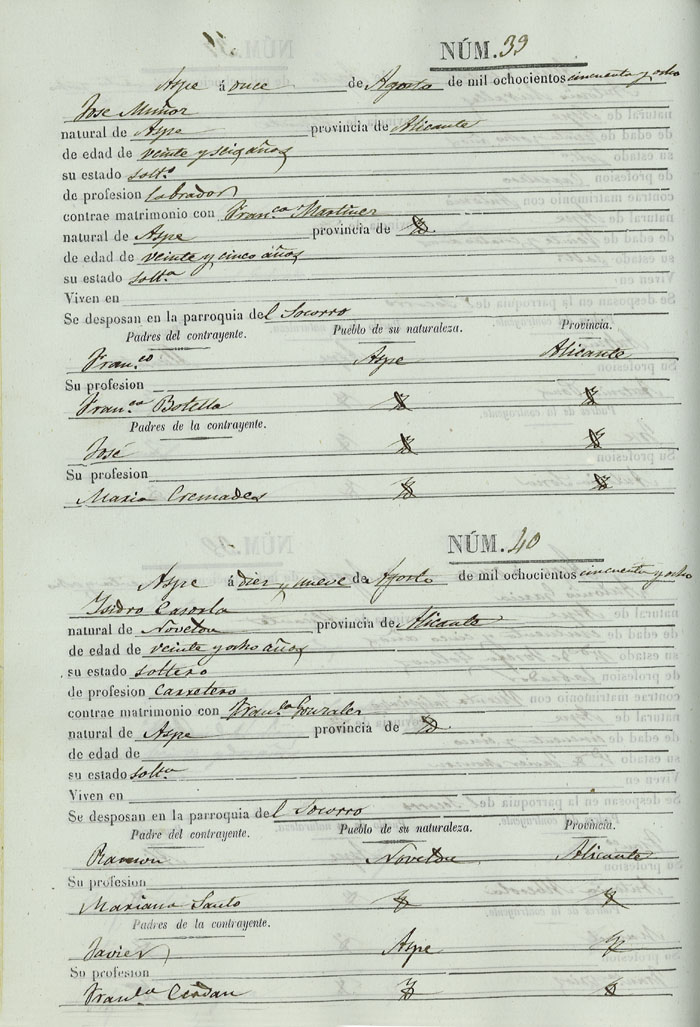 NÚM. 39
Aspe á once de Agosto de mil ochocientos cincuenta y ocho
Jose Muñoz
natural de Aspe provincia de Alicante
de edad de veinte y seis años
su estado solt.o
de profesion Labrador
contrae matrimonio con Fran.ca Martinez
natural de Aspe provincia de
de edad de veinte y cinco años
su estado solt.a
Viven en
Se desposan en la parroquia del Socorro
Padres del contrayente. Pueblo de su naturaleza. Provincia.
Fran.co Aspe Alicante
Su profesion
Fran.ca Botella
Padres de la contrayente.
José
Su profesion
Maria Cremades
NÚM. 40
Aspe á diez y nueve de Agosto de mil ochocientos cincuenta y ocho
Isidro Casorla
natural de Novelda provincia de Alicante
de edad de veinte y ocho años
su estado soltero
de profesion Carretero
contrae matrimonio con Fran.ca Gonzalez
natural de Aspe provincia de
de edad de
su estado solt.a
Viven en
Se desposan en la parroquia del Socorro
Padre del contrayente. Pueblo de su naturaleza. Provincia.
Ramon Novelda Alicante
Su profesion
Mariana Santo
Padres de la contrayente.
Javier Aspe
Su profesion
Fran.ca Cerdan